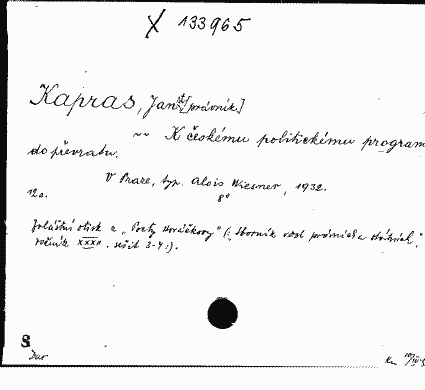 X 133965
Kapras, Jan st. [právník]
~~ K českému politickému program
do převratu.
V Praze, typ. Alois Wiesner, 1932.
12 s. 8°
Zvláštní otisk z „Pocty Horáčkovy" (: Sborník věd právních a státních,
ročník XXXII. sešit 3-4:).
S
Dar